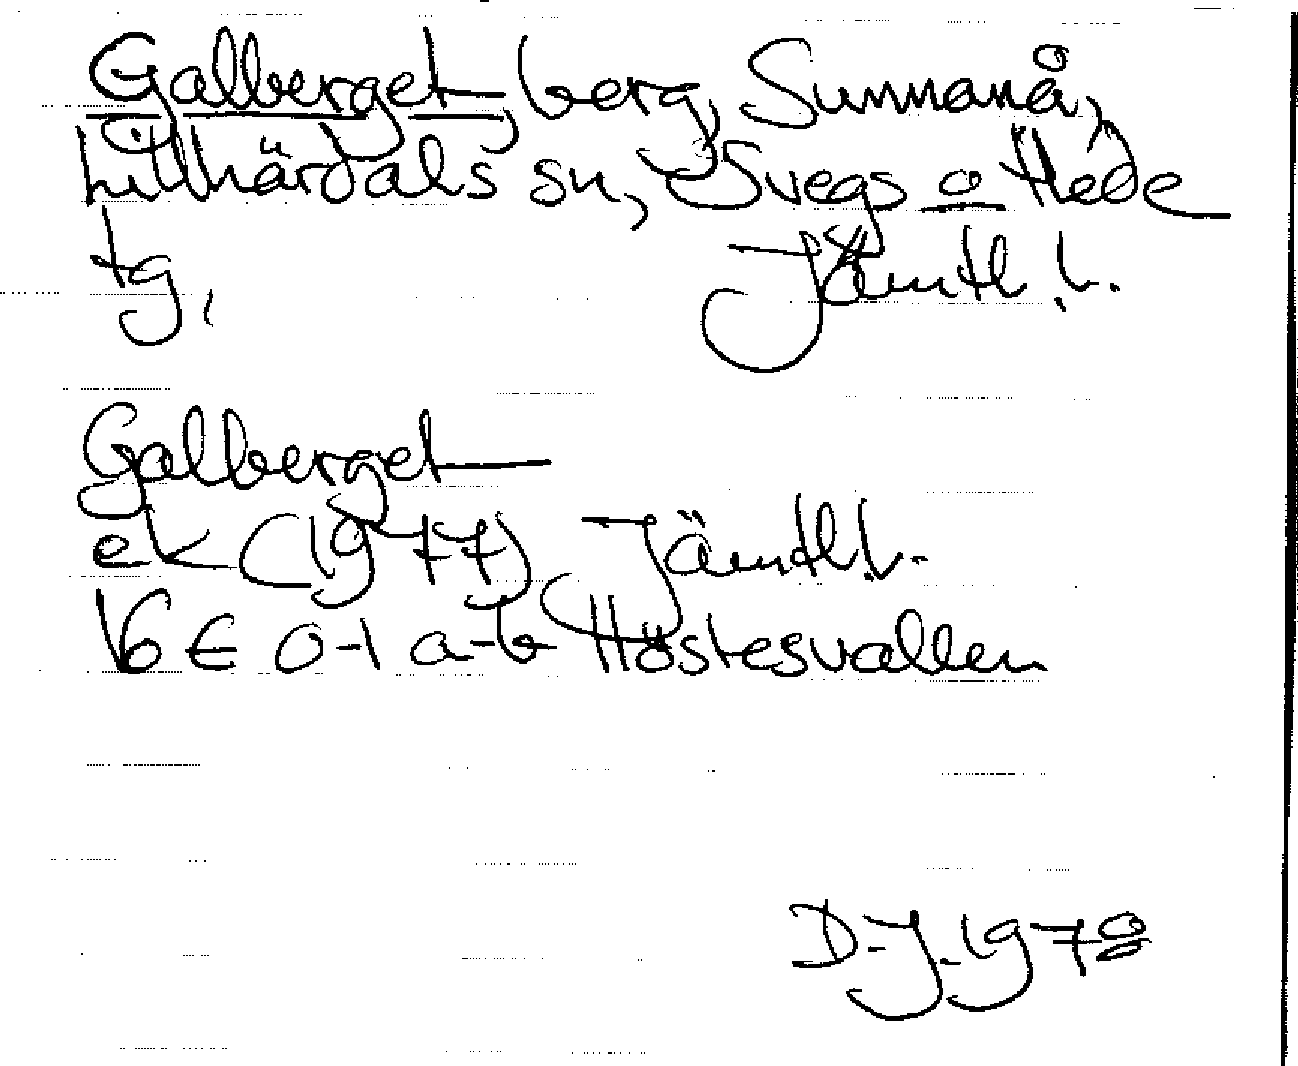 Galberget, berg, Sunnanå,
Lillhärdals sn, Svegs o Hede
tg, Jämtl. l.
Galberget
ek (1977) Jämtl. l.
16 E 0-1 a-b Höstesvallen
D-J. 1978